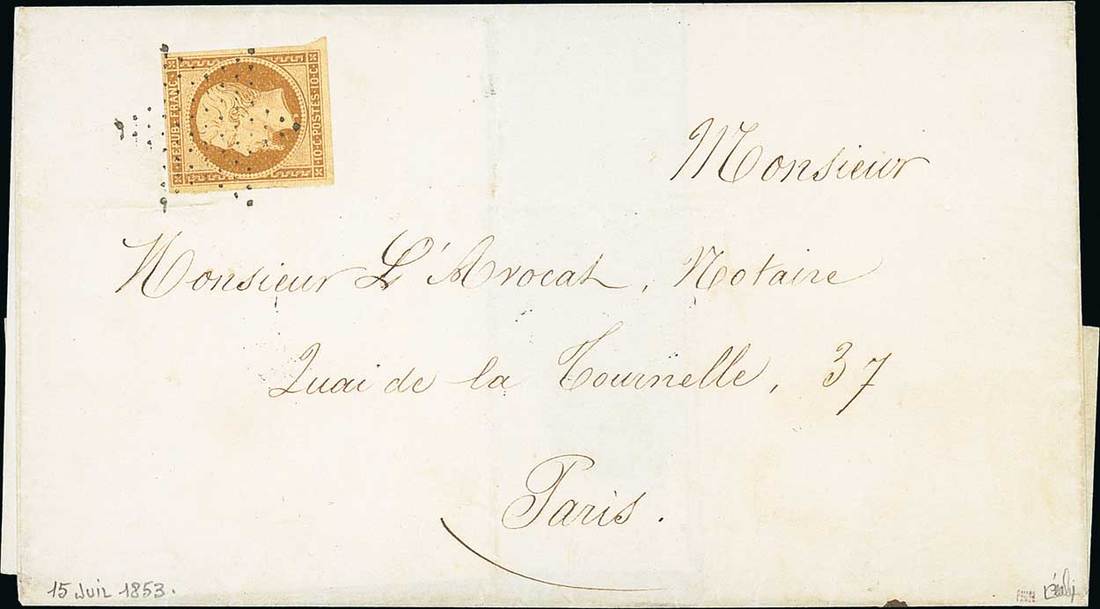 REPUB. FRANC.
10 C. POSTES 10 C.
Monsieur
Monsieur L'Avocat, Notaire
Quai de la Tournelle, 37
Paris.
15 Juil 1853.